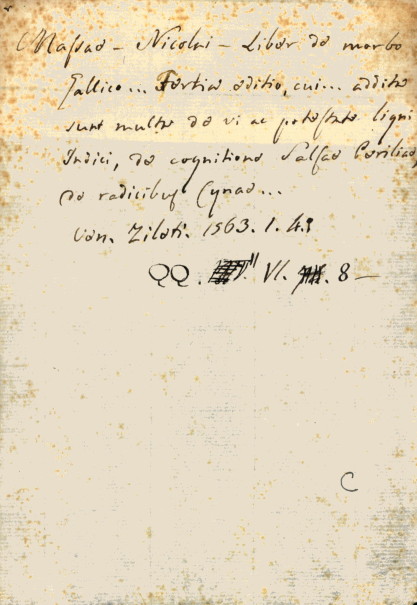 Massae - Nicolai - Liber de morbo
Gallico... Tertia editio, cui... addita
sunt multa de vi ac potestate ligni
Indici, de cognitione Salsae Periliae,
de radicibus Cynae...
Ven. Zileti. 1563. 1. 4º
QQ. VI. 8 —
C